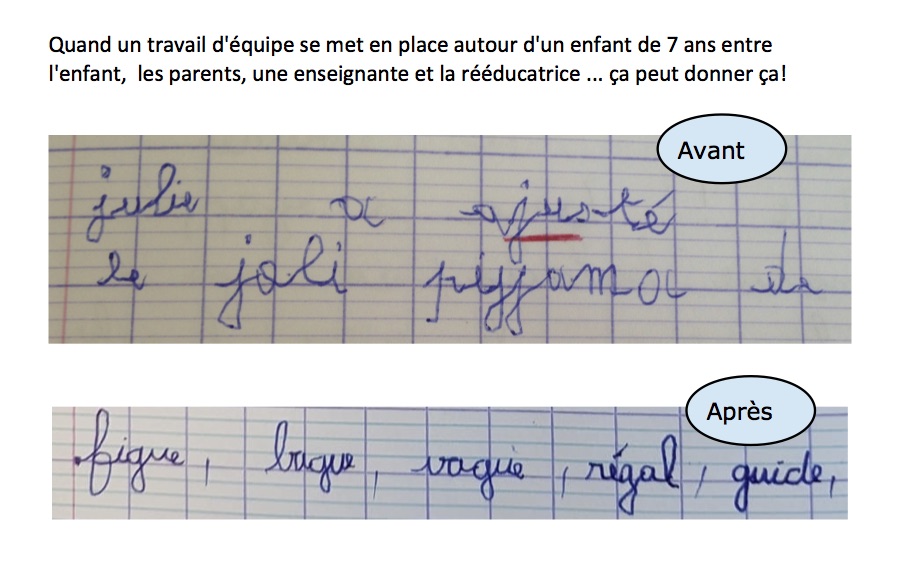 Quand un travail d'équipe se met en place autour d'un enfant de 7 ans entre
l'enfant, les parents, une enseignante et la rééducatrice ... ça peut donner ça!
Avant
julie a ajusté
le joli pyjama de
Après
figue, bague, vague, régal, guide,